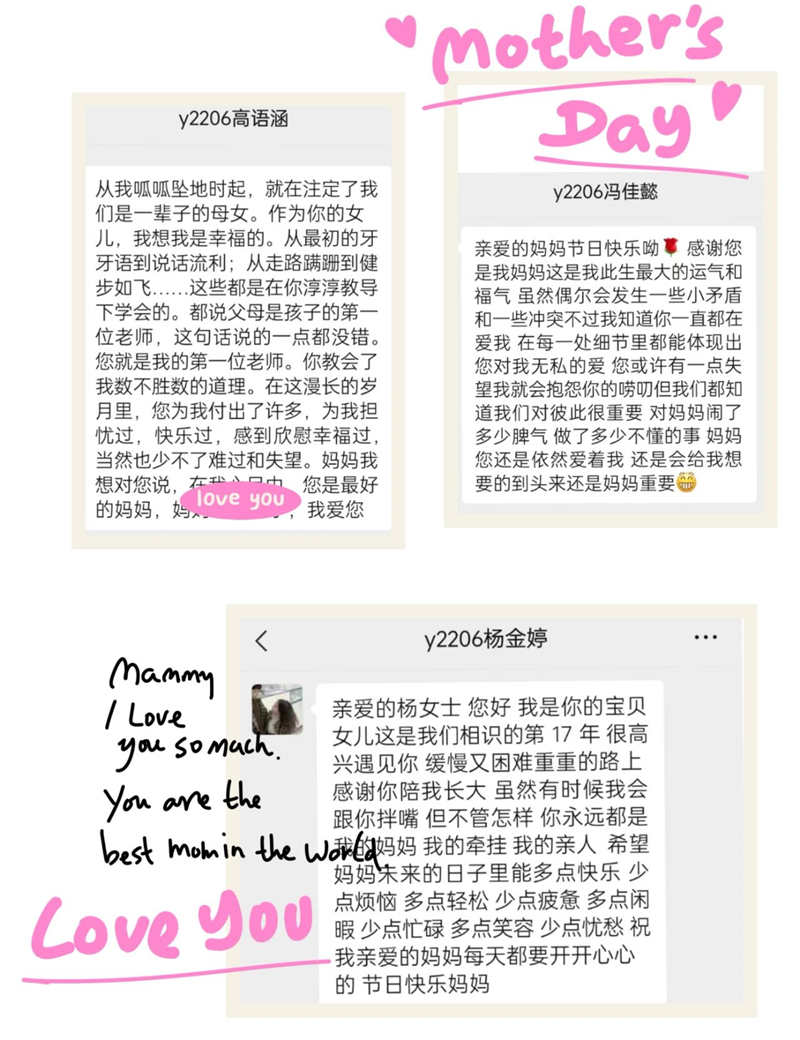 Mother's
Day
y2206高语涵
从我呱呱坠地时起，就在注定了我
们是一辈子的母女。作为你的女
儿，我想我是幸福的。从最初的牙
牙语到说话流利；从走路蹒跚到健
步如飞……这些都是在你淳淳教导
下学会的。都说父母是孩子的第一
位老师，这句话说的一点都没错。
您就是我的第一位老师。你教会了
我数不胜数的道理。在这漫长的岁
月里，您为我付出了许多，为我担
忧过，快乐过，感到欣慰幸福过，
当然也少不了难过和失望。妈妈我
想对您说，在我心目中，您是最好
的妈妈，妈，我爱您
love you
y2206冯佳懿
亲爱的妈妈节日快乐呦🌹 感谢您
是我妈妈这是我此生最大的运气和
福气 虽然偶尔会发生一些小矛盾
和一些冲突不过我知道你一直都在
爱我 在每一处细节里都能体现出
您对我无私的爱 您或许有一点失
望我就会抱怨你的唠叨但我们都知
道我们对彼此很重要 对妈妈闹了
多少脾气 做了多少不懂的事 妈妈
您还是依然爱着我 还是会给我想
要的到头来还是妈妈重要😁
Mammy
I Love
you so mach.
You are the
best mom in the world.
Love You
y2206杨金婷
亲爱的杨女士 您好 我是你的宝贝
女儿这是我们相识的第 17 年 很高
兴遇见你 缓慢又困难重重的路上
感谢你陪我长大 虽然有时候我会
跟你拌嘴 但不管怎样 你永远都是
我的妈妈 我的牵挂 我的亲人 希望
妈妈未来的日子里能多点快乐 少
点烦恼 多点轻松 少点疲惫 多点闲
暇 少点忙碌 多点笑容 少点忧愁 祝
我亲爱的妈妈每天都要开开心心
的 节日快乐妈妈